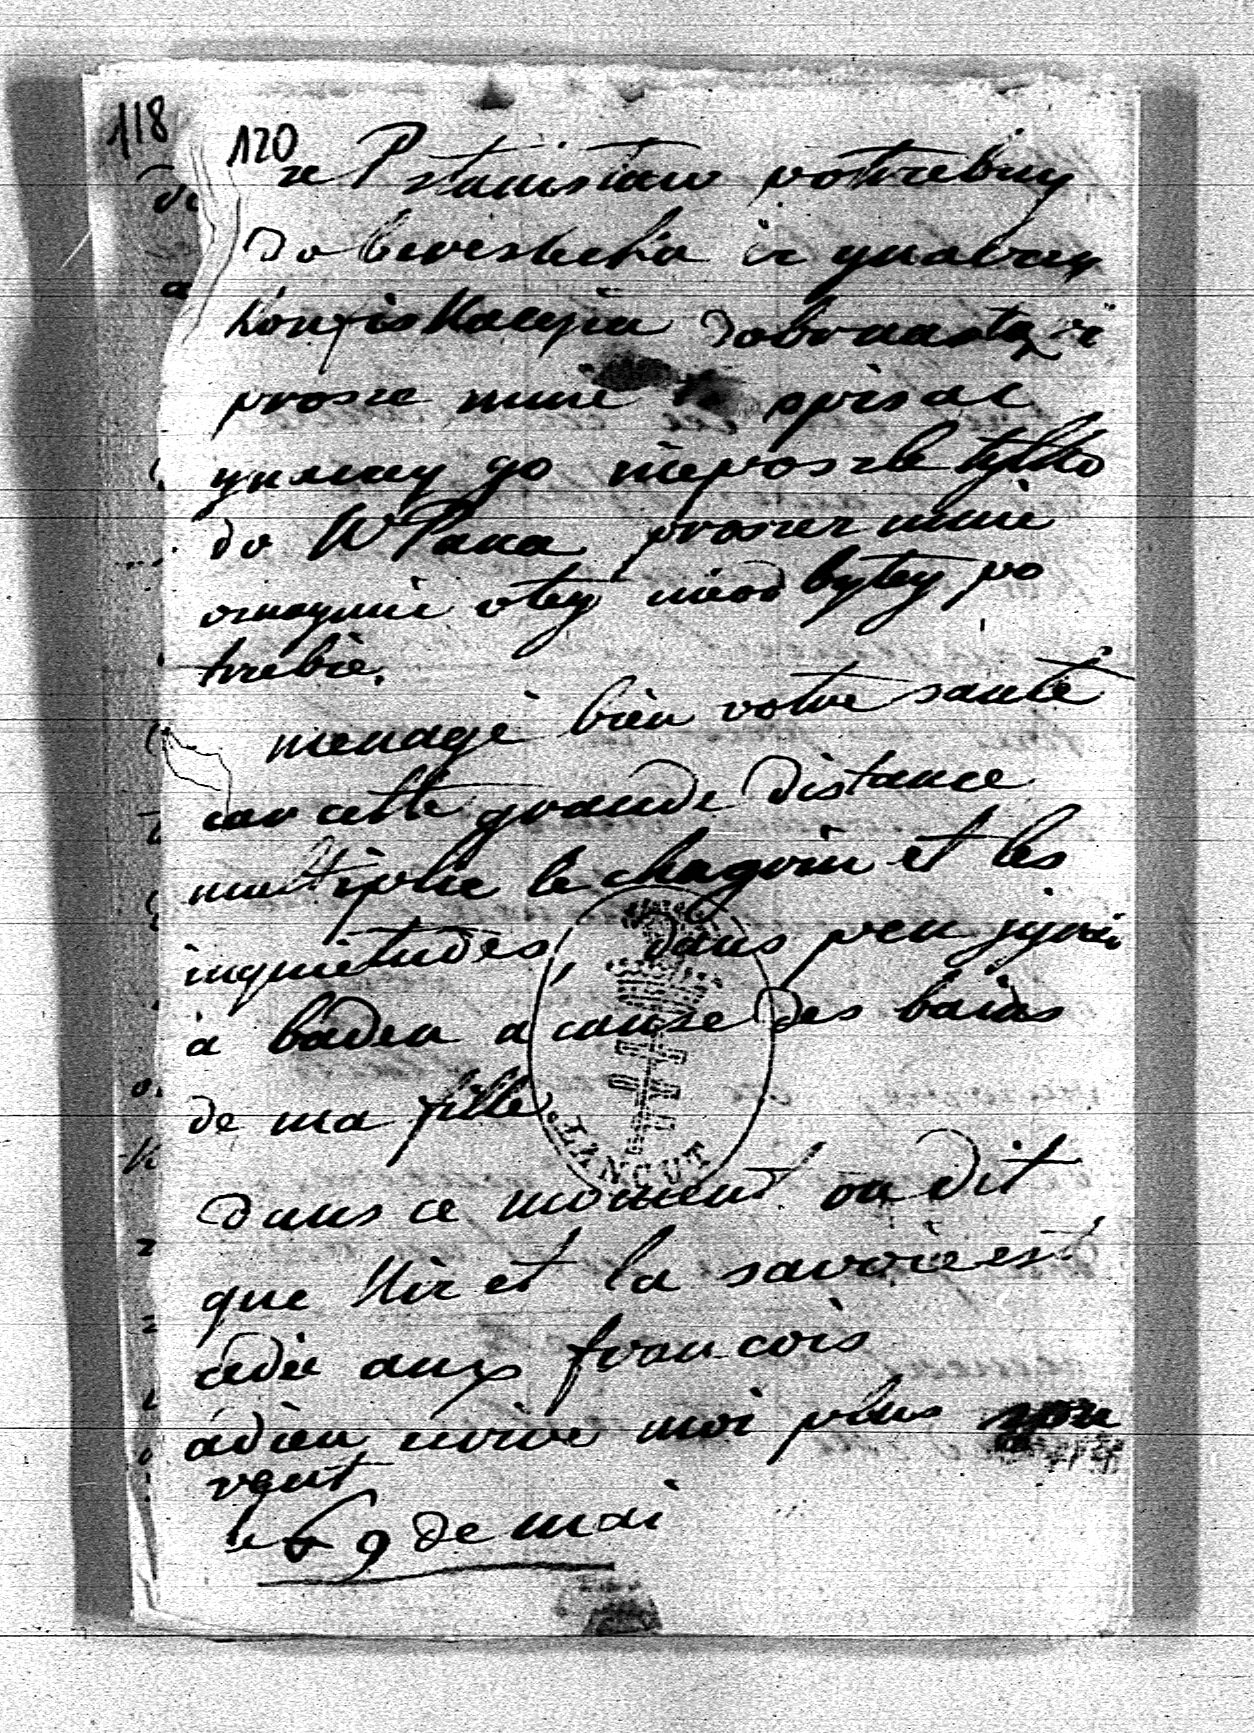 118
120
ze P stanistaw potrebuy
do berestecka
konfiskacyiu
prosze mnie spisac
go nieposzle tylko
do WPana proszez mnie
oznaymic otey nieodbytey po
trebie.
menagé bien votre santé
car cette grande distance
multiplie le chagrin et les
inquietudes, dans peu
a baden a cause des bains
de ma fille
dans ce moment on dit
que Nice et la savoie est
cedée aux francois
adieu, ecrive moi plus sou
vent
le 9 de mai
ŁAŃCUT